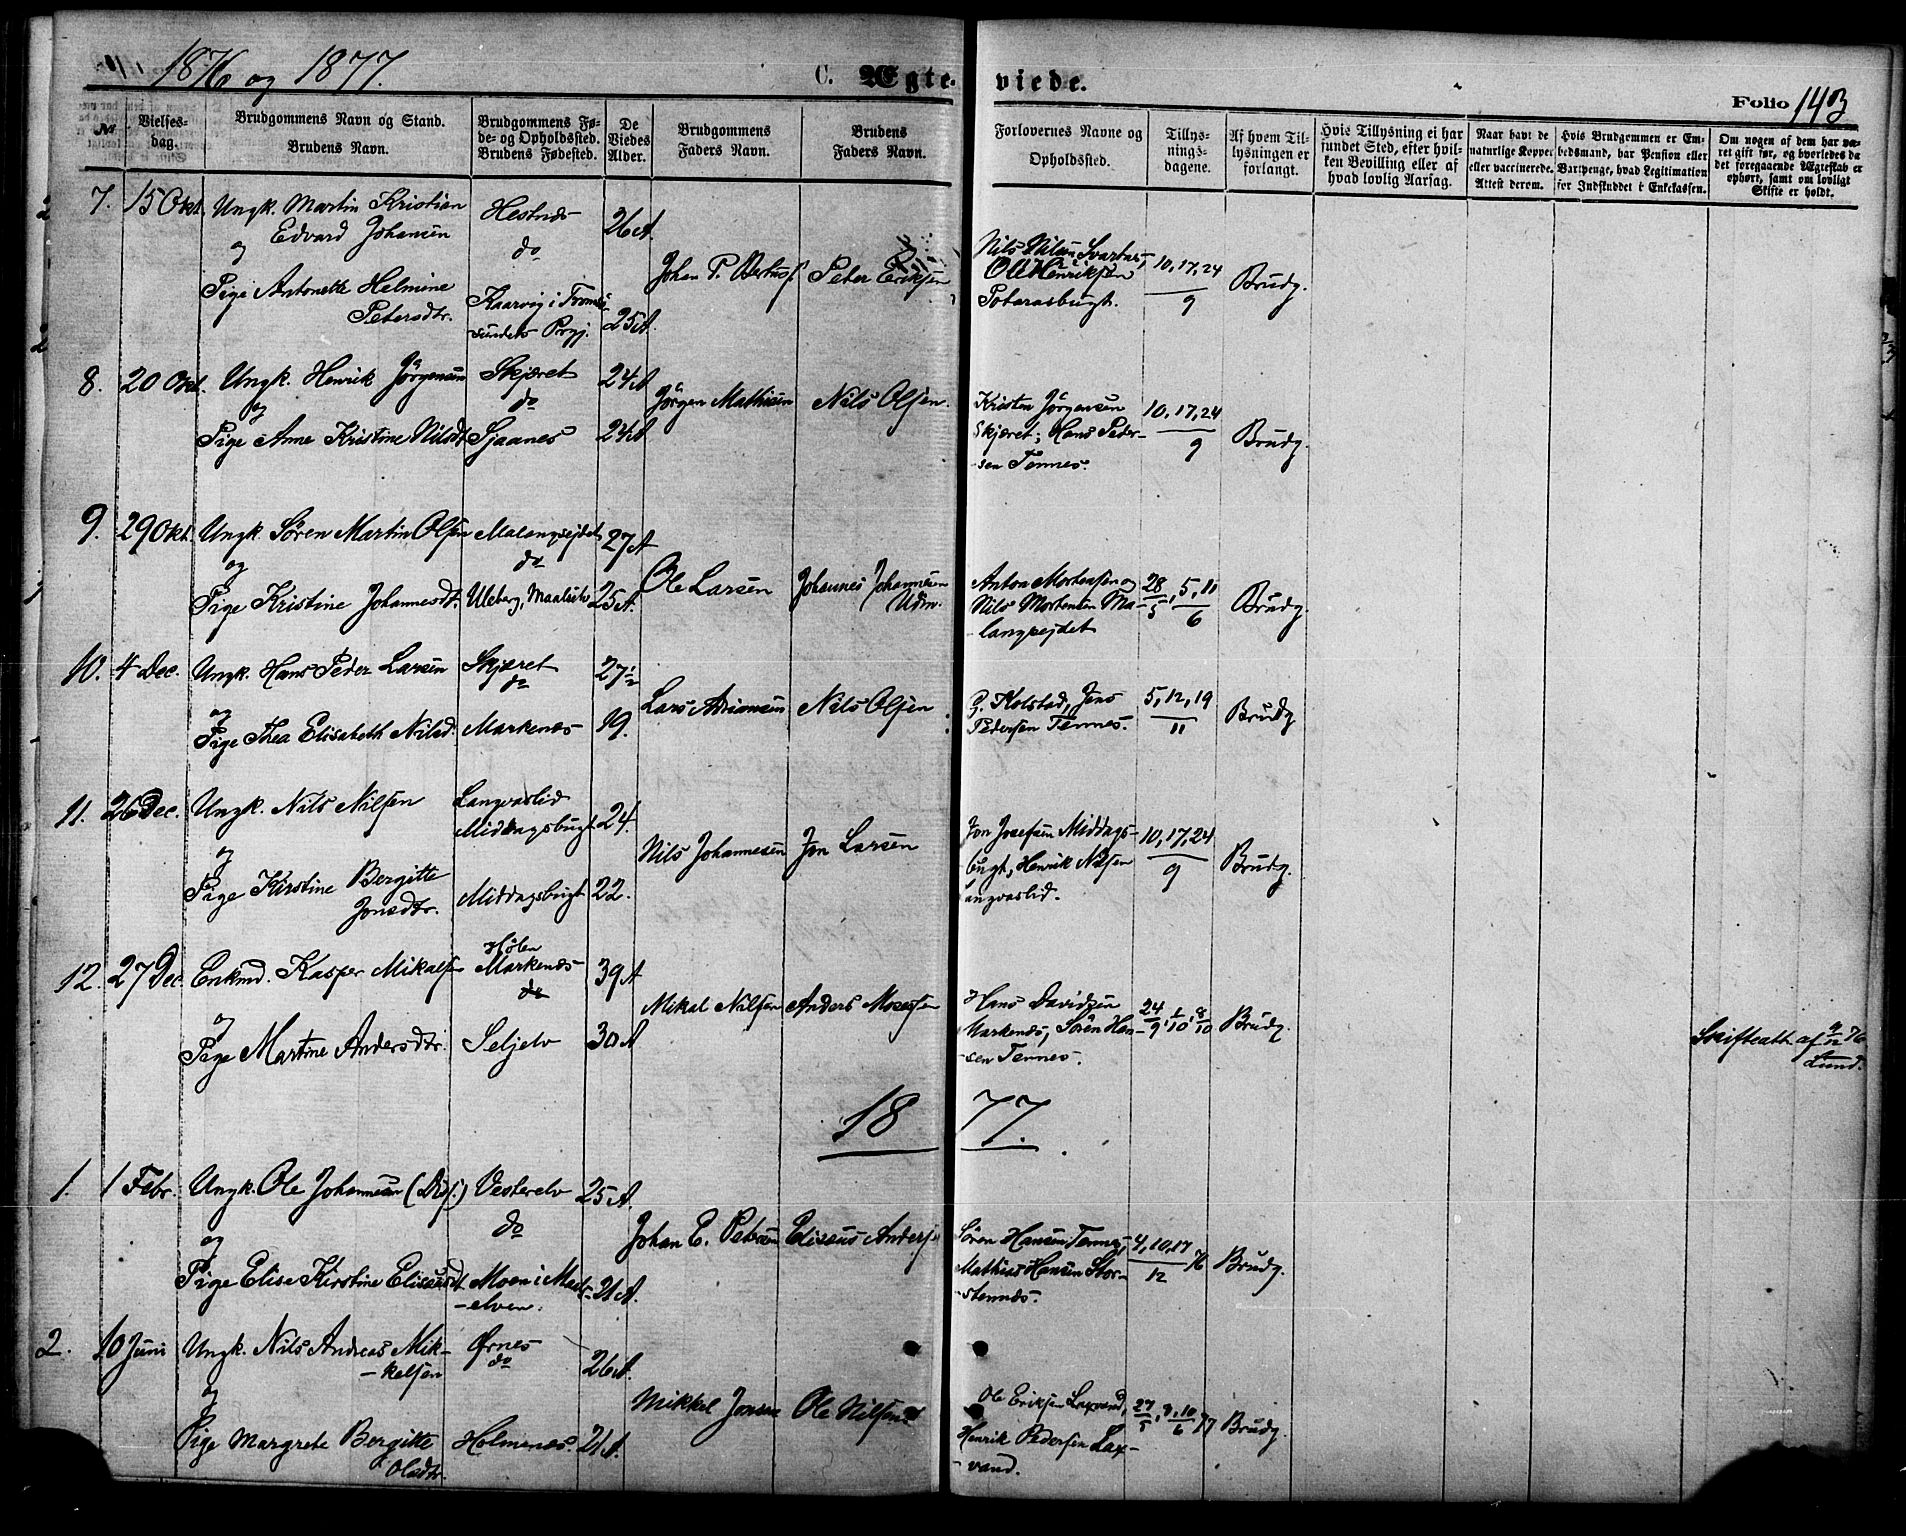 1876 og 1877.
C. Ægte-
viede.
Folio 143
№
Vielses-
dag.
Brudgommens Navn og Stand.
Brudens Navn.
Brudgommens Fø-
de- og Opholdssted.
Brudens Fødested.
De
Viedes
Alder.
Brudgommens
Faders Navn.
Brudens
Faders Navn.
Forlovernes Navne og
Opholdssted.
Tillys-
nings-
dagene.
Af hvem Til-
lysningen er
forlangt.
Hvis Tillysning ei har
fundet Sted, efter hvil-
ken Bevilling eller af
hvad lovlig Aarsag.
Naar havt de
naturlige Kopper
eller vaccinerede.
Attest derom.
Hvis Brudgommen er Em-
bedsmand, har Pension eller
Vartpenge, hvad Legitimation
for Indskuddet i Enkekassen.
Om nogen af dem har va-
ret gift før, og hvorledes da
det foregaaende Ægteskab er
ophørt, samt om lovligt
Skifte er holdt.
7. 15 Okt. Ungk. Martin Kristian
Edvard Johansen
og
Pige Antonette Helmine
Petersdtr.
Hestnes
do
Kaarvig i Tromsø-
sundets Prgj.
26 A.
25 A.
Johan P.
Peter Eriksen
Nils Nilsen
Ole Henriksen
10, 17, 24
9
Brudg.
8. 20 Okt. Ungk. Henrik Jörgensen
og
Pige Anne Kristine Nilsdt.
Skjæret
do
Sjaanes
24 A
24 A
Jörgen Mathisen
Nils Olsen.
Kristen Jörgensen
Skjæret; Hans Peder-
-sen Tennes.
10, 17, 24
9
Brudg.
9. 29 Okt. Ungk. Sören Martin Olsen
og
Pige Kristine Johannesdt.
Malangsejdet
do
Uleberg, Maalselv
27 A
25 A.
Ole Larsen
Johannes Johannesen
Anton Mortensen og
Nils Mortensen Ma-
-langsejdet
28/5, 5, 11/6
Brudg.
10. 4 Dec. Ungk. Hans Peder Larsen
og
Pige Thea Elisabeth Nilsd.
Skjæret
do
Markenes
27 1/2
19.
Lars Adriansen
Nils Olsen
G. Kolstad, Jens
Pedersen Tennes.
5, 12, 19
11
Brudg
11. 26 Dec. Ungk. Nils Nilsen
og
Pige Kirstine Bergitte
Jonsdtr.
Langvaslid
Middagsbugt
Middagsbugt
24.
22.
Nils Johannesen
Jon Larsen
Jon Josefsen Middags-
-bugt, Henrik Nilsen
Langvaslid.
10, 17, 24
9
Brudg.
12. 27 Dec. Enkmd. Kasper Mikalsen
og
Pige Martine Andersdtr.
Hølen
Markenes
do
Seljelv
39 A
30 A
Mikal Nilsen
Anders Mosesen
Hans Davidsen
Markenes, Sören Han-
-sen Tennes.
24/9, 1/10, 8/10
Brudg.
Skifteatt. af 9/12 76
Lund.
1877.
1. 1 Febr. Ungk. Ole Johannesen (Diss.)
og
Pige Elise Kirstine Eliseusdt.
Vesterelv
do
Moen i Maals-
-elven.
25 A.
21 A.
Johan E. Petersen
Eliseus Andersen
Sören Hansen Tennes,
Mathias Hansen Stor-
-stennes.
4, 10, 17
12 76
Brudg.
2. 10 Juni Ungk. Nils Andreas Mik-
-kelsen
og
Pige Margrete Bergitte
Olsdtr.
Ørnes
do
Holmenes.
26 A.
21 A.
Mikkel Jonsen
Ole Nilsen
Ole Eriksen Laxvand,
Henrik Pedersen Lax-
-vand.
27/5, 3, 10/6 77
Brudg.